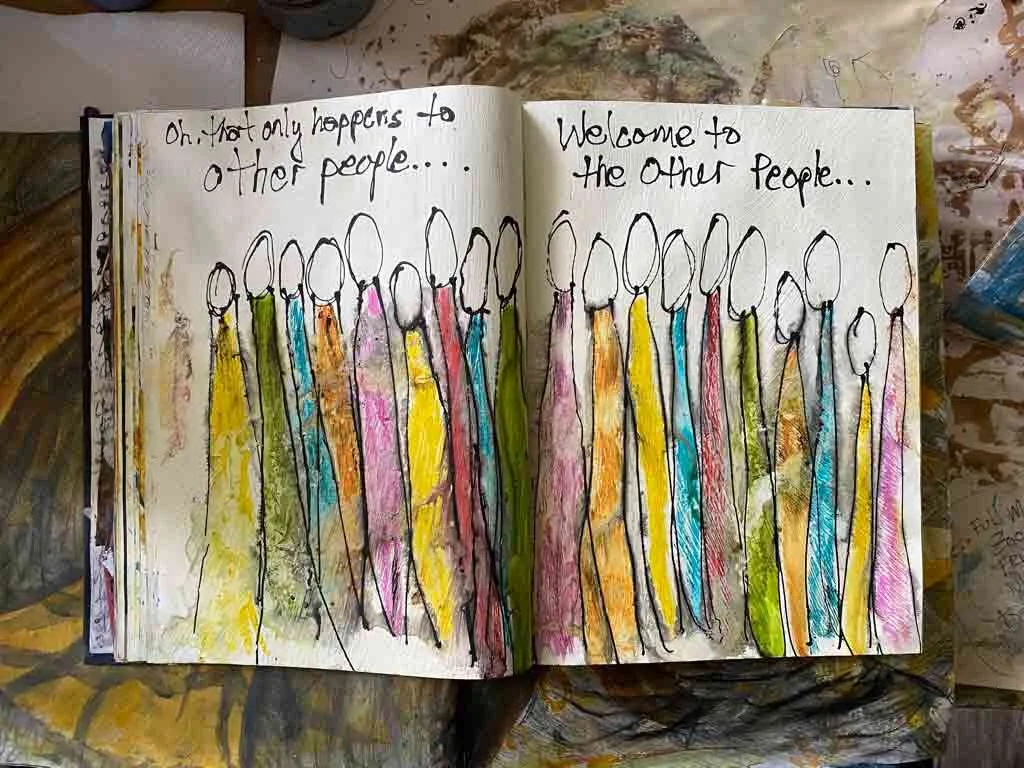 Oh, that only happens to
other people....
Welcome to
the Other People...